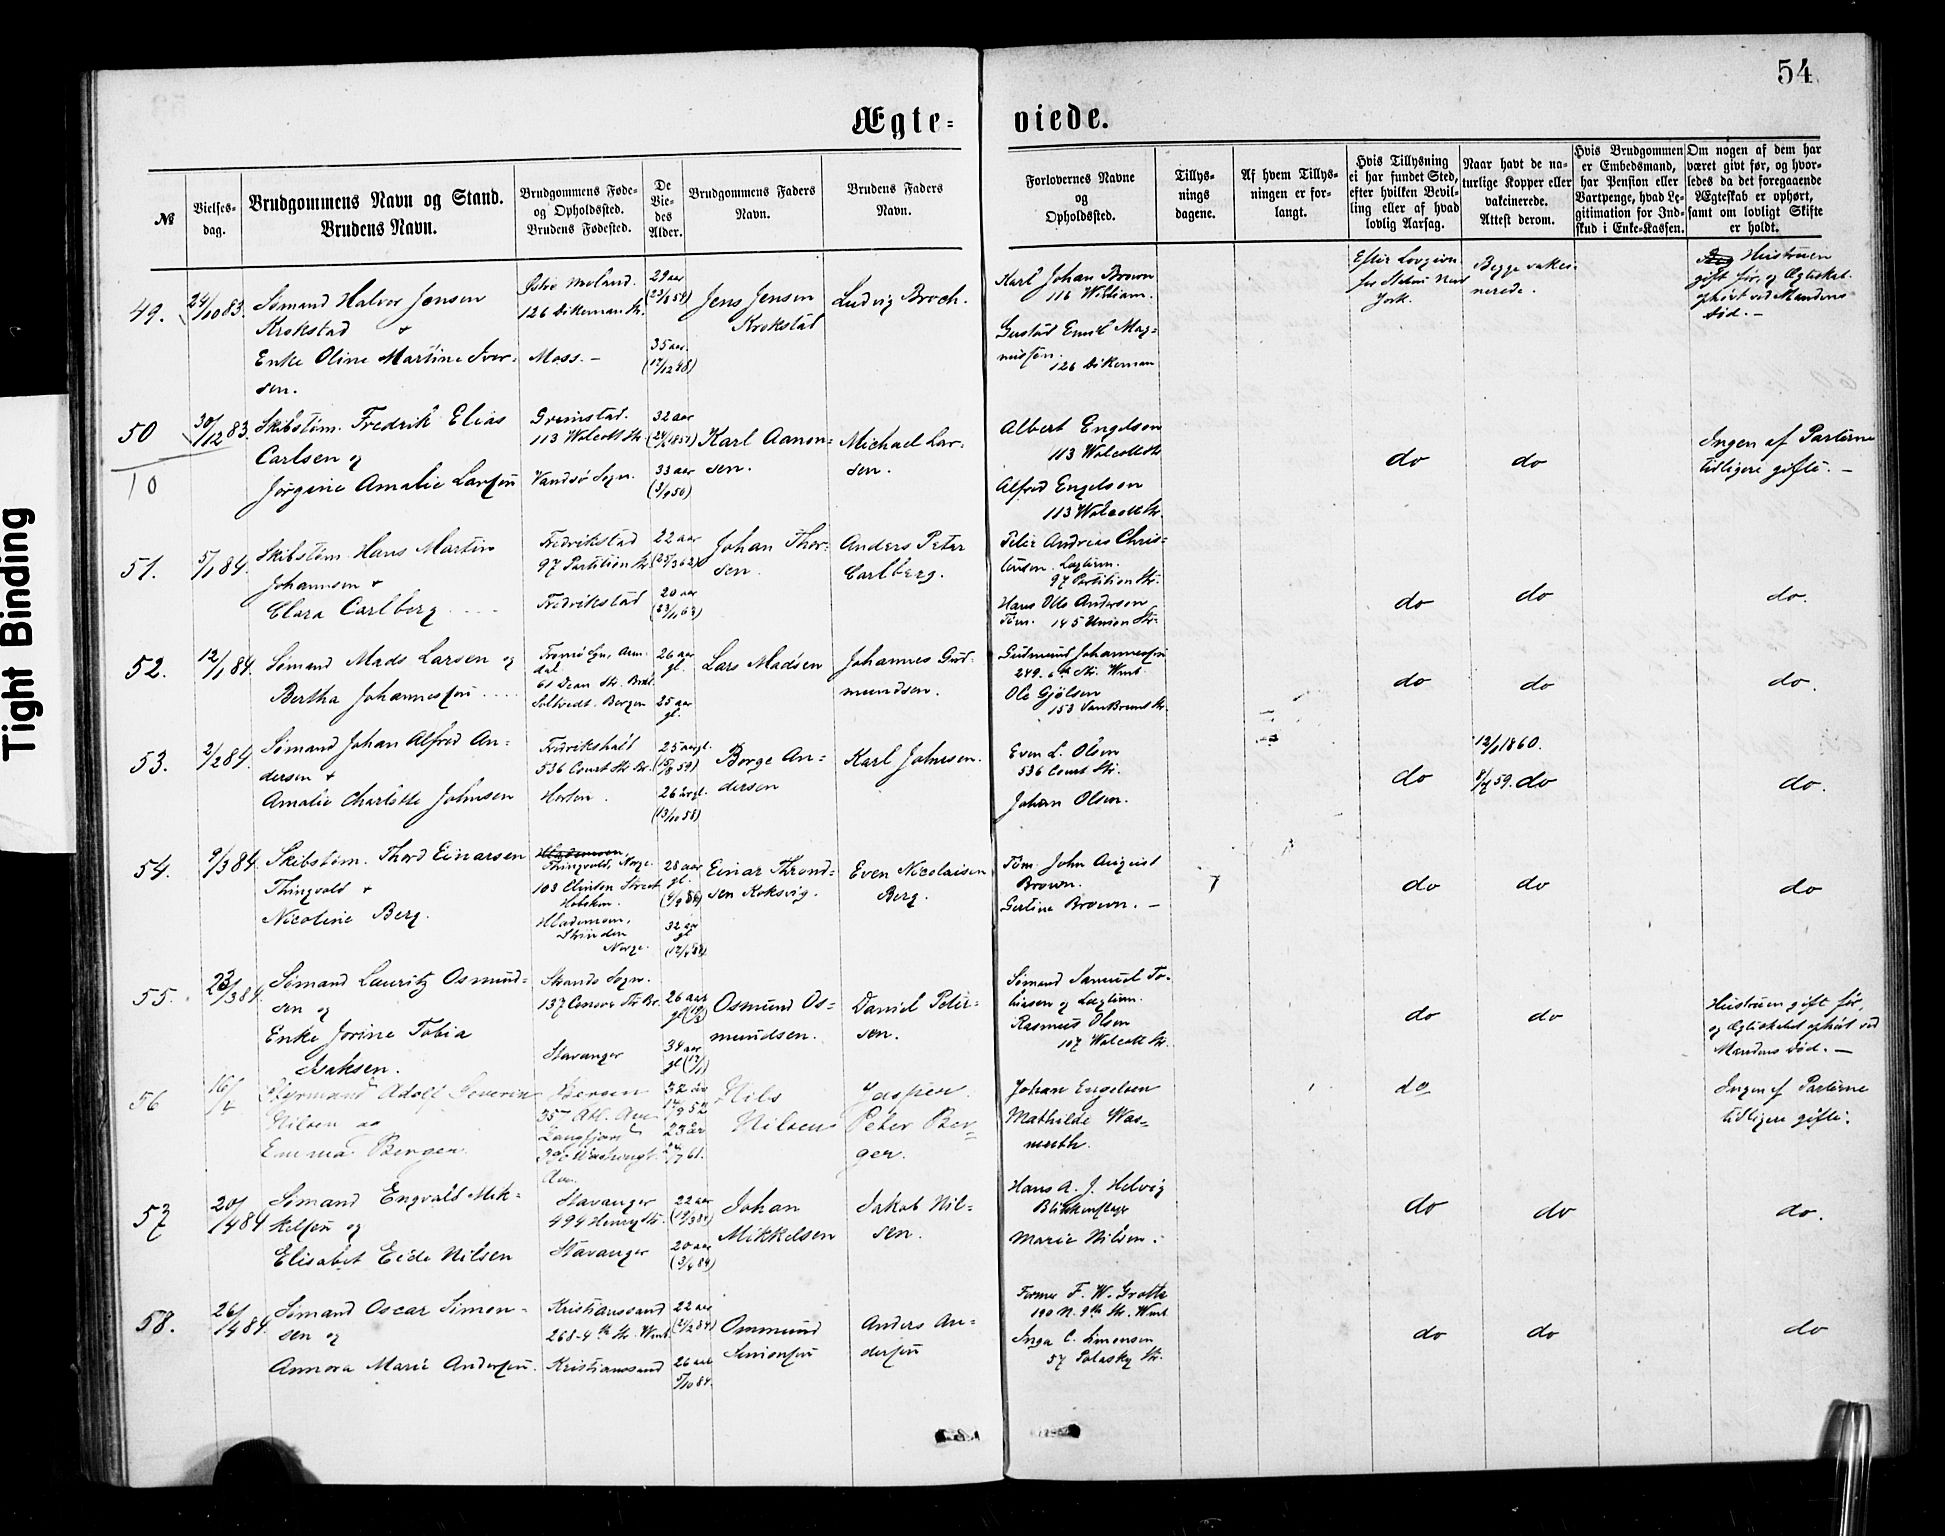 54
Ægte-
viede.
№
Vielses-
dag.
Brudgommens Navn og Stand.
Brudens Navn.
Brudgommens Føde-
og Opholdssted.
Brudens Fødested.
De
Vie-
des
Alder.
Brudgommens Faders
Navn.
Brudens Faders
Navn.
Forlovernes Navne
og
Opholdssted.
Tillys-
nings
dagene.
Af hvem Tillys-
ningen er for-
langt.
Hvis Tillysning
ei har fundet Sted,
efter hvilken Bevil-
ling eller af hvad
lovlig Aarsag.
Naar havt de na-
turlige Kopper eller
vakcinerede.
Attest derom.
Hvis Brudgommen
er Embedsmand,
har Pension eller
Vartpenge, hvad Le-
gitimation for Ind-
skud i Enke-Kassen.
Om nogen af dem har
været givt før, og hvor-
ledes da det foregaaende
Ægteskab er ophørt,
samt om lovligt Skifte
er holdt.
49.
24/10 83.
Sømand Halvor Jensen
Krokstad +
Enke Oline Martine Iver-
sen.
Østre Moland.
126 Dikeman Str.
Moss. —
29 aar
35 aar
Jens Jensen
Krokstad
Ludvig Broch.
Karl Johan Brown
116 William.
Gustav Emil Mag-
nussen.
126 Dikeman
Efter Lovgivn.
for Staten New
York.
Begge vakci-
nerede.
Hustruen
gift før, og Ægteskab.
ophørt ved Mandens
død. —
50
30/12 83.
10
Skibstøm. Fredrik Elias
Carlsen og
Jørgine Amalie Larsen
Grimstad.
113 Walcott Str.
Vandsø Sogn.
32 aar
33 aar
Karl Aanon-
sen.
Michael Lar-
sen.
Albert Engelson
113 Walcott Str.
Alfred Engelson
113 Walcott Str.
do
do
Ingen af Parterne
tidligere gifte. —
51.
5/1 84.
Skibstøm. Hans Martin
Johannsen +
Clara Carlberg
Fredrikstad
97 Partition Str.
Fredrikstad
22 aar
(25/3 62)
20 aar
(23/11 63)
Johan Thor-
sen.
Anders Peter
Carlberg.
Peter Andreas Chris-
tensen. Lagterm.
97 Partition Str.
Hans Olle Anderson
Tøm. 145 Union Str.
do
do
do.
52.
12/1 84.
Sømand Mads Larsen og
Bertha Johannessen
Tromø Sgn, Aren-
dal
61 Dean Str. Brol.
Soltvedt. Bergen
26 aar
gl.
25 aar
gl.
Lars Madsen
Johannes Gud-
mundsen.
Gudmund Johannessen
249. 6th Str. Wmb.
Ole Gjølsen
153 Van Brunt Str.
do
do
do.
53.
2/2 84.
Sømand Johan Alfred An-
dersen +
Amalie Charlotte Johnsen
Fredrikshald
536 Court Str Br.
Horten.
25 aar gl.
(15/8 59)
26 år gl.
(13/10 58)
Børge An-
dersen
Karl Johnsen.
Even L. Olsen
536 Court Str.
Johan Olsen.
do
12/1 1860.
59. do
do.
54.
9/3 84.
Skibstøm. Thord Einarsen
Thingvold +
Nicoline Berg.
Thingvold, Norge.
103 Clinton Street
Hoboken.
Norge.
28 aar
gl.
32 år
gl
Einar Thrond-
sen Koksvig.
Even Nicolaisen
Berg.
Tøm. John August
Brown.
Gertine Brown. —
do
do
do
55.
23/3 84.
Sømand Lauritz Osmund-
sen og
Enke Jorine Tobia
Isaksen.
Strands Sogn.
137 Conover Str Br.
Stavanger
26 aar
34 aar
Osmund Os-
mundsen.
Daniel Peter-
sen.
Sømand Samuel To-
biasen og Lagtium.
Rasmus Olsen
107 Walcott Str.
do
do
Hustruen gift før,
og Ægteskabet ophørt ved
Mandens død. —
56
16/4
Styrmand Adolf Severin
Nilsen og
Emma Berger.
Bergen
35 Atl. Ave
Langfjord
390 Washingt.
Ave.
32 år
23 år
Nils
Nilsen
Jasper
Peter Ber-
ger.
Johan Engelsen
Mathilde Was-
muth.
do
Ingen af Parterne
tidligere gifte.
57
20/4 84
Sømand Engvald Mik-
kelsen og
Elisabet Eide Nilsen
Stavanger
494 Henry Str.
Stavanger
22 aar
20 aar
(3/4 84)
Johan
Mikkelsen
Jakob Nil-
sen.
Hans A. J. Helvig
Blikkenslager
Marie Nilsen.
do
do
do.
58.
26/4 84
Sømand Oscar Simon-
sen og
Annora Marie Andersen.
Kristianssand
268-4th Str. Wmb
Kristianssand
22 aar
26 aar
5/10 84.
Ommund
Simonsen
Anders An-
dersen
Former F. W. Groth
190 N. 9th Str. Wmb
Inga C. Simonsen
57 Polasky Str.
do
do
do
Tight Binding